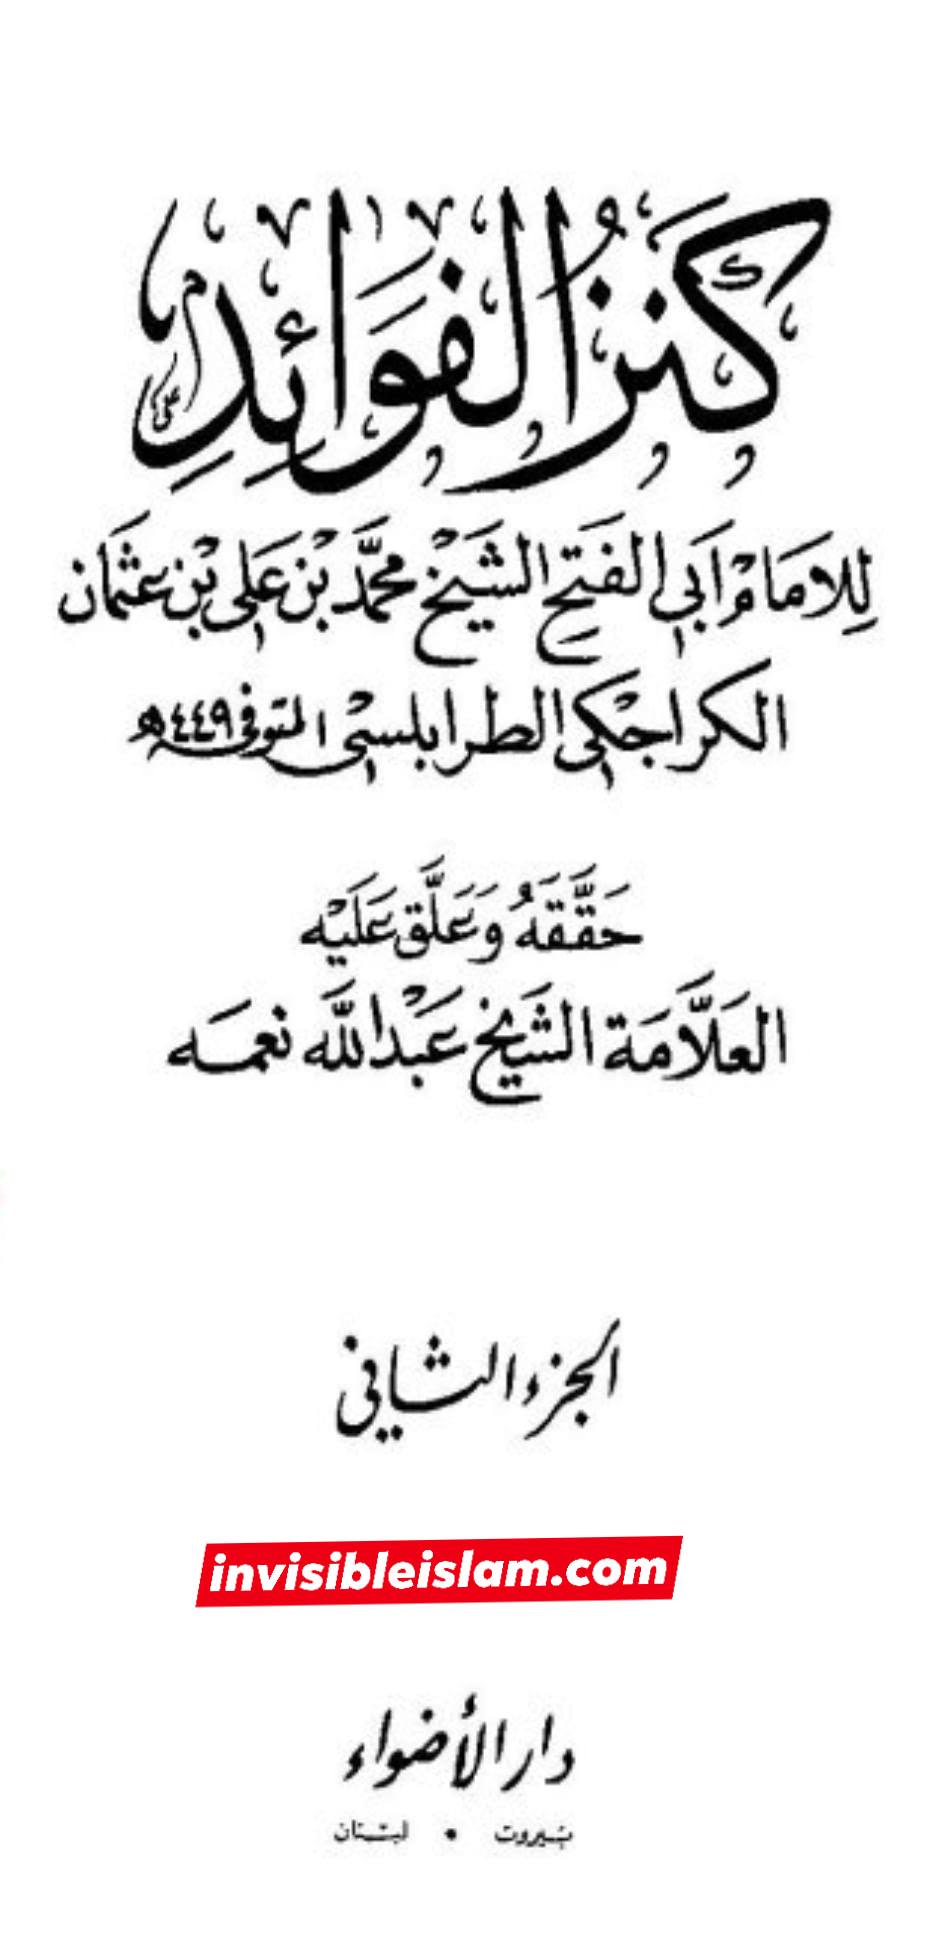 كَنزُ الفَوَائِدِ
لِلإمَامْ اَبي الفَتِحِ الشَيَخْ محمَّد بْن عَلى بْن عثمَان
الكراجْكى الطرابلسْى المتوفى ٤٤٩ هـ
حَقَّقَهُ وَعَلَّق عَلَيْه
العَلاَّمَة الشَيخ عَبْدالله نعمَه
الجزء الثاني
invisibleislam.com
دار الأضواء
بيروت • لبنان